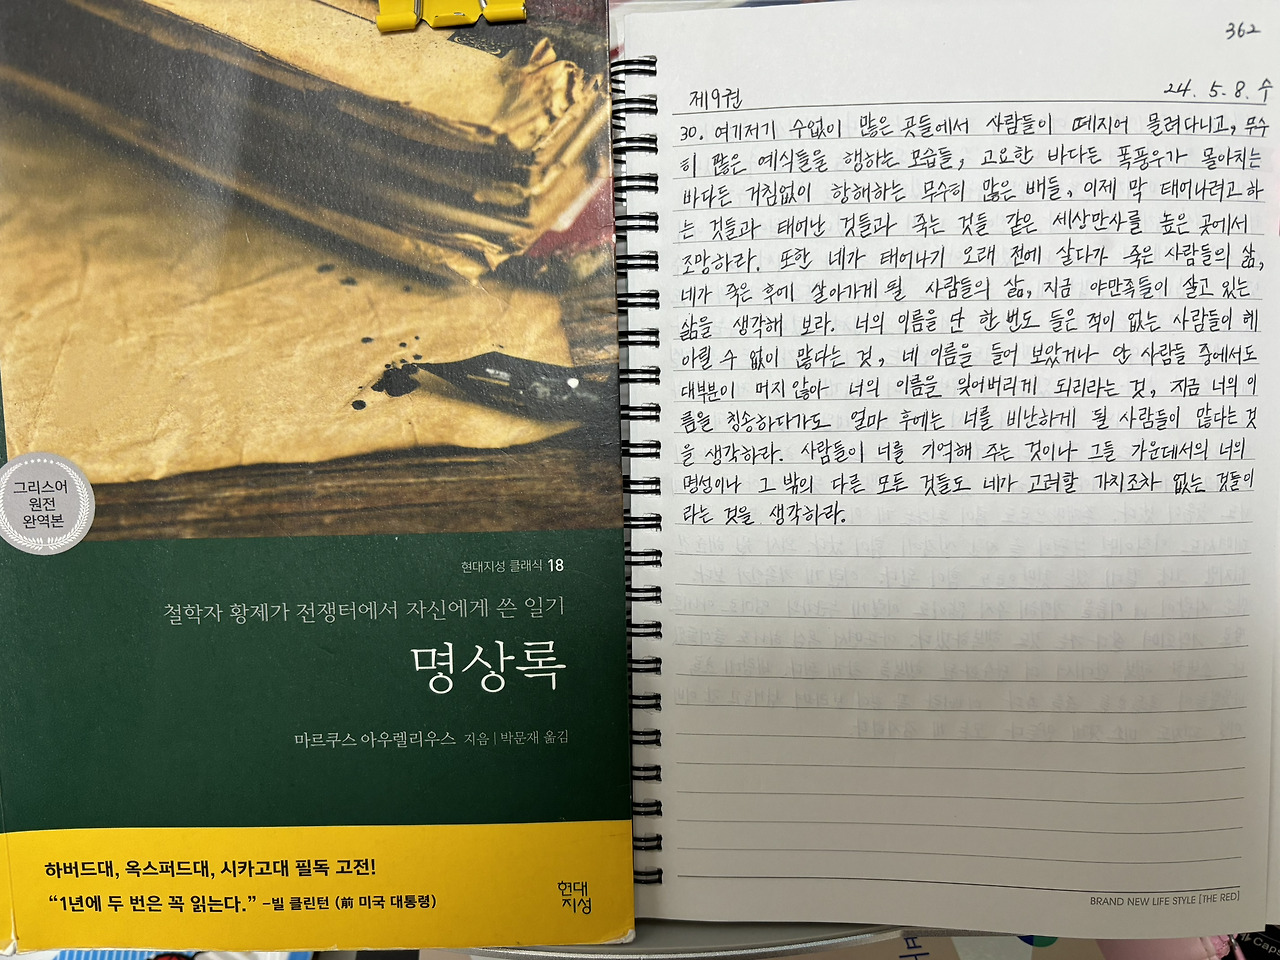 그리스어
원전
완역본
현대지성 클래식 18
철학자 황제가 전쟁터에서 자신에게 쓴 일기
명상록
마르쿠스 아우렐리우스 지음 | 박문재 옮김
하버드대, 옥스퍼드대, 시카고대 필독 고전!
“1년에 두 번은 꼭 읽는다.” –빌 클린턴 (前 미국 대통령)
현대
지성
362
제9권
24. 5. 8. 수
30. 여기저기 수없이 많은 곳들에서 사람들이 떼지어 몰려다니고, 무수
히 많은 예식들을 행하는 모습들, 고요한 바다든 폭풍우가 몰아치는
바다든 거침없이 항해하는 무수히 많은 배들, 이제 막 태어나려고 하
는 것들과 태어난 것들과 죽는 것들 같은 세상만사를 높은 곳에서
조망하라. 또한 네가 태어나기 오래 전에 살다가 죽은 사람들의 삶,
네가 죽은 후에 살아가게 될 사람들의 삶, 지금 야만족들이 살고 있는
삶을 생각해 보라. 너의 이름을 단 한 번도 들은 적이 없는 사람들이 헤
아릴 수 없이 많다는 것, 네 이름을 들어 보았거나 안 사람들 중에서도
대부분이 머지 않아 너의 이름을 잊어버리게 되리라는 것, 지금 너의 이
름을 칭송하다가도 얼마 후에는 너를 비난하게 될 사람들이 많다는 것
을 생각하라. 사람들이 너를 기억해 주는 것이나 그들 가운데서의 너의
명성이나 그 밖의 다른 모든 것들도 네가 고려할 가치조차 없는 것들이
라는 것을 생각하라.
BRAND NEW LIFE STYLE [THE RED]
Caps